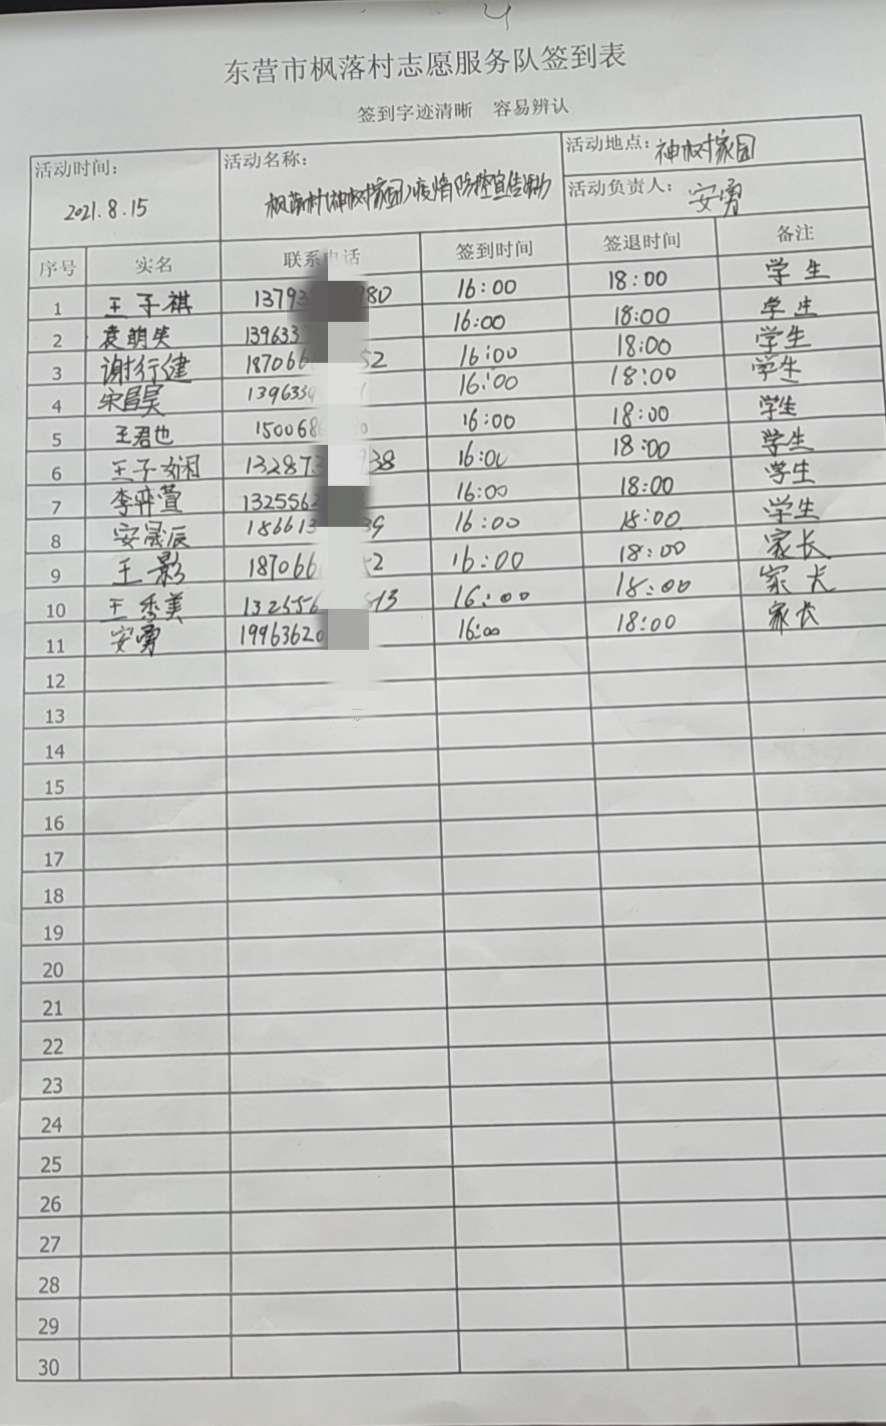 东营市枫落村志愿服务队签到表
签到字迹清晰 容易辨认
活动时间: 2021.8.15
活动名称: 枫落村(神树家园)疫情防控宣传活动
活动地点: 神树家园
活动负责人: 安勇
序号 实名 联系电话 签到时间 签退时间 备注
1 王子祺 1379 80 16:00 18:00 学生
2 袁明笑 139633 16:00 18:00 学生
3 谢行健 187066 52 16:00 18:00 学生
4 宋昌昊 139633 16:00 18:00 学生
5 王君也 150068 16:00 18:00 学生
6 王子娴 132873 38 16:00 18:00 学生
7 李弈萱 1325562 16:00 18:00 学生
8 安晟辰 186613 39 16:00 18:00 学生
9 王影 187066 2 16:00 18:00 家长
10 王秀美 132556 13 16:00 18:00 家长
11 安勇 19963620 16:00 18:00 家长
12
13
14
15
16
17
18
19
20
21
22
23
24
25
26
27
28
29
30